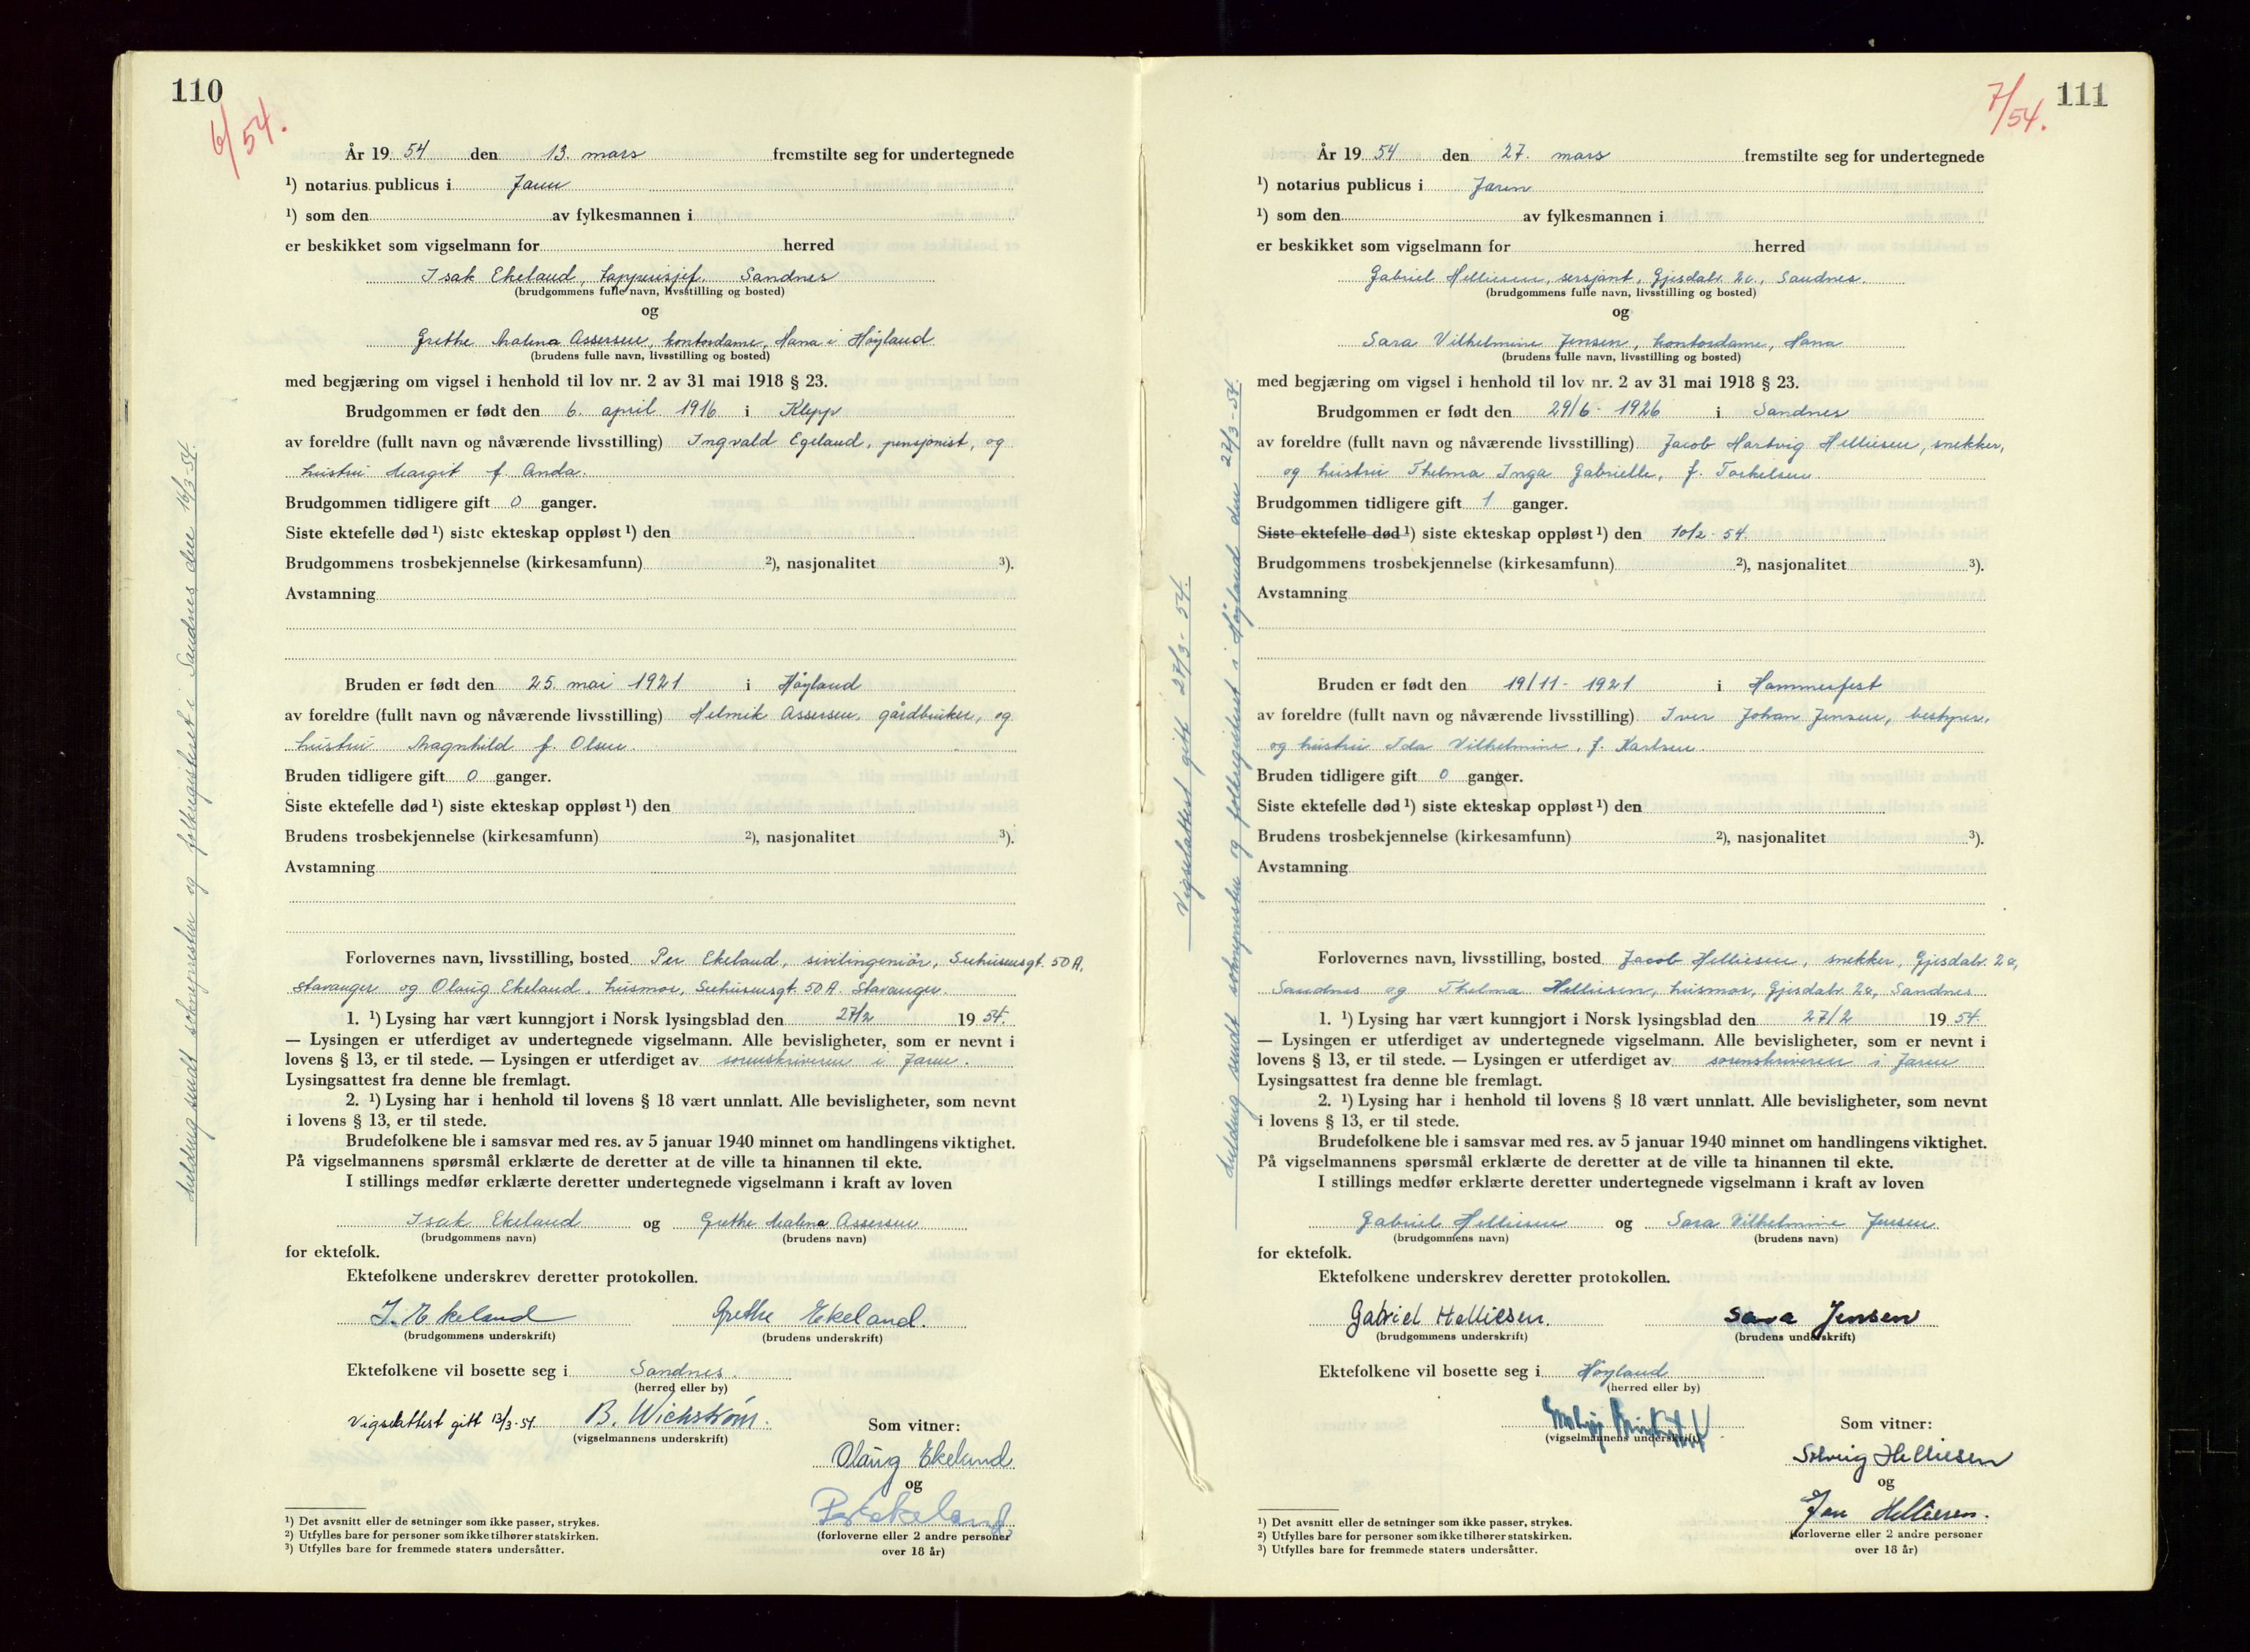 110
6/54.
År 19 54 den 13. mars fremstilte seg for undertegnede
¹) notarius publicus i Jæren
¹) som den av fylkesmannen i
er beskikket som vigselmann for herred
Isak Ekeland, tapperisjef, Sandnes
(brudgommens fulle navn, livsstilling og bosted)
og
Grethe Malena Assersen, kontordame, Hana i Høyland
(brudens fulle navn, livsstilling og bosted)
med begjæring om vigsel i henhold til lov nr. 2 av 31 mai 1918 § 23.
Brudgommen er født den 6. april 1916 i Klepp
av foreldre (fullt navn og nåværende livsstilling) Ingvald Egeland, pensjonist, og
hustru Margit f. Anda.
Brudgommen tidligere gift 0 ganger.
Siste ektefelle død ¹) siste ekteskap oppløst ¹) den
Brudgommens trosbekjennelse (kirkesamfunn) ²), nasjonalitet ³).
Avstamning
Bruden er født den 25. mai 1921 i Høyland
av foreldre (fullt navn og nåværende livsstilling) Helmik Assersen, gårdbruker, og
hustru Magnhild f. Olsen.
Bruden tidligere gift 0 ganger.
Siste ektefelle død ¹) siste ekteskap oppløst ¹) den
Brudens trosbekjennelse (kirkesamfunn) ²), nasjonalitet ³).
Avstamning
Forlovernes navn, livsstilling, bosted Per Ekeland, sivilingeniør, Seehusensgt. 50 A,
Stavanger og Olaug Ekeland, husmor, Seehusensgt. 50 A. Stavanger.
1. ¹) Lysing har vært kunngjort i Norsk lysingsblad den 27/2 19 54.
— Lysingen er utferdiget av undertegnede vigselmann. Alle bevisligheter, som er nevnt i
lovens § 13, er til stede. — Lysingen er utferdiget av sorenskriveren i Jæren.
Lysingsattest fra denne ble fremlagt.
2. ¹) Lysing har i henhold til lovens § 18 vært unnlatt. Alle bevisligheter, som nevnt
i lovens § 13, er til stede.
Brudefolkene ble i samsvar med res. av 5 januar 1940 minnet om handlingens viktighet.
På vigselmannens spørsmål erklærte de deretter at de ville ta hinannen til ekte.
I stillings medfør erklærte deretter undertegnede vigselmann i kraft av loven
Isak Ekeland og Grethe Malena Assersen
(brudgommens navn) (brudens navn)
for ektefolk.
Ektefolkene underskrev deretter protokollen.
I. Ekeland Grethe Ekeland.
(brudgommens underskrift) (brudens underskrift)
Ektefolkene vil bosette seg i Sandnes.
(herred eller by)
Vigselattest gitt 13/3-54. B. Wichstrøm.
(vigselmannens underskrift)
Som vitner:
Olaug Ekeland
og
Per Ekeland
(forloverne eller 2 andre personer
over 18 år)
¹) Det avsnitt eller de setninger som ikke passer, strykes.
²) Utfylles bare for personer som ikke tilhører statskirken.
³) Utfylles bare for fremmede staters undersåtter.
Melding sendt soknepresten og folkeregisteret i Sandnes den 16/3-54.
111
7/54.
År 19 54 den 27. mars fremstilte seg for undertegnede
¹) notarius publicus i Jæren
¹) som den av fylkesmannen i
er beskikket som vigselmann for herred
Gabriel Helliesen, sersjant, Gjesdalv. 2a, Sandnes.
(brudgommens fulle navn, livsstilling og bosted)
og
Sara Vilhelmine Jensen, kontordame, Hana
(brudens fulle navn, livsstilling og bosted)
med begjæring om vigsel i henhold til lov nr. 2 av 31 mai 1918 § 23.
Brudgommen er født den 29/6- 1926 i Sandnes
av foreldre (fullt navn og nåværende livsstilling) Jacob Hartvig Helliesen, snekker,
og hustru Thelma Inga Gabrielle, f. Torkelsen
Brudgommen tidligere gift 1 ganger.
Siste ektefelle død ¹) siste ekteskap oppløst ¹) den 10/2-54.
Brudgommens trosbekjennelse (kirkesamfunn) ²), nasjonalitet ³).
Avstamning
Bruden er født den 19/11- 1921 i Hammerfest
av foreldre (fullt navn og nåværende livsstilling) Iver Johan Jensen, bestyrer,
og hustru Ida Vilhelmine, f. Karlsen.
Bruden tidligere gift 0 ganger.
Siste ektefelle død ¹) siste ekteskap oppløst ¹) den
Brudens trosbekjennelse (kirkesamfunn) ²), nasjonalitet ³).
Avstamning
Forlovernes navn, livsstilling, bosted Jacob Helliesen, snekker, Gjesdalv. 2a,
Sandnes og Thelma Helliesen, husmor, Gjesdalv. 2a, Sandnes
1. ¹) Lysing har vært kunngjort i Norsk lysingsblad den 27/2 19 54.
— Lysingen er utferdiget av undertegnede vigselmann. Alle bevisligheter, som er nevnt i
lovens § 13, er til stede. — Lysingen er utferdiget av sorenskriveren i Jæren
Lysingsattest fra denne ble fremlagt.
2. ¹) Lysing har i henhold til lovens § 18 vært unnlatt. Alle bevisligheter, som nevnt
i lovens § 13, er til stede.
Brudefolkene ble i samsvar med res. av 5 januar 1940 minnet om handlingens viktighet.
På vigselmannens spørsmål erklærte de deretter at de ville ta hinannen til ekte.
I stillings medfør erklærte deretter undertegnede vigselmann i kraft av loven
Gabriel Helliesen og Sara Vilhelmine Jensen.
(brudgommens navn) (brudens navn)
for ektefolk.
Ektefolkene underskrev deretter protokollen.
Gabriel Helliesen. Sara Jensen
(brudgommens underskrift) (brudens underskrift)
Ektefolkene vil bosette seg i Høyland
(herred eller by)
(vigselmannens underskrift)
Som vitner:
Solveig Helliesen
og
Jan Helliesen.
(forloverne eller 2 andre personer
over 18 år)
¹) Det avsnitt eller de setninger som ikke passer, strykes.
²) Utfylles bare for personer som ikke tilhører statskirken.
³) Utfylles bare for fremmede staters undersåtter.
Vigselattest gitt 27/3-54.
Melding sendt soknepresten og folkeregisteret i Høyland den 27/3-54.